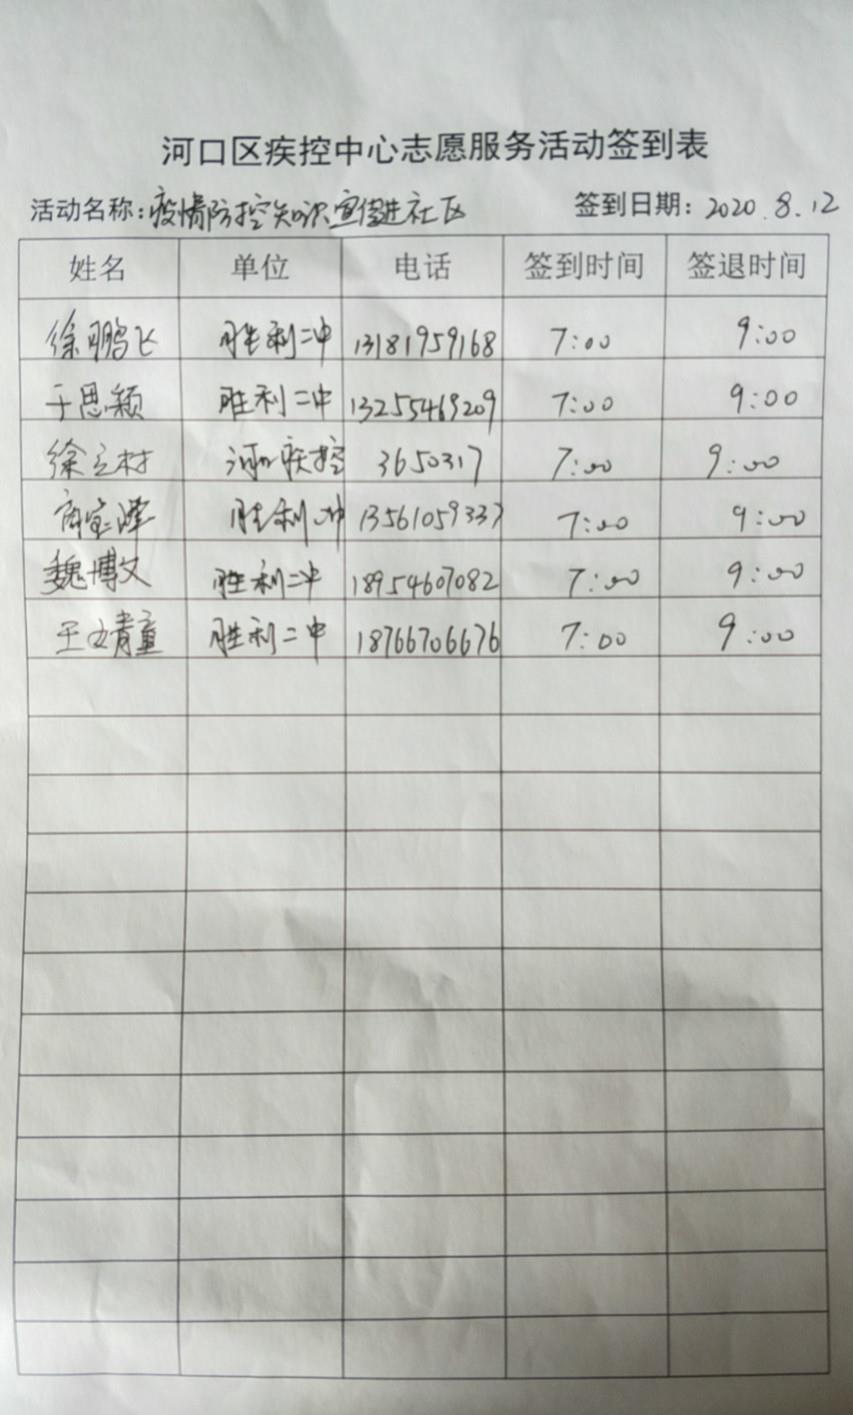 河口区疾控中心志愿服务活动签到表
活动名称:疫情防控知识宣传进社区 签到日期: 2020.8.12
姓名 单位 电话 签到时间 签退时间
徐鹏飞 胜利二中 13181959168 7:00 9:00
于思颖 胜利二中 13255469209 7:00 9:00
徐立村 河口疾控 3650317 7:00 9:00
胜利二中 13561059337 7:00 9:00
魏博文 胜利二中 18954607082 7:00 9:00
王文青童 胜利二中 18766706676 7:00 9:00